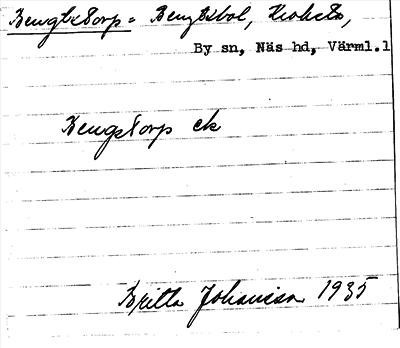 Bengtstorp = Bengtsbol,
By sn, Näs hd, Värml.l
Bengstorp ck
Britta Johansson 1935